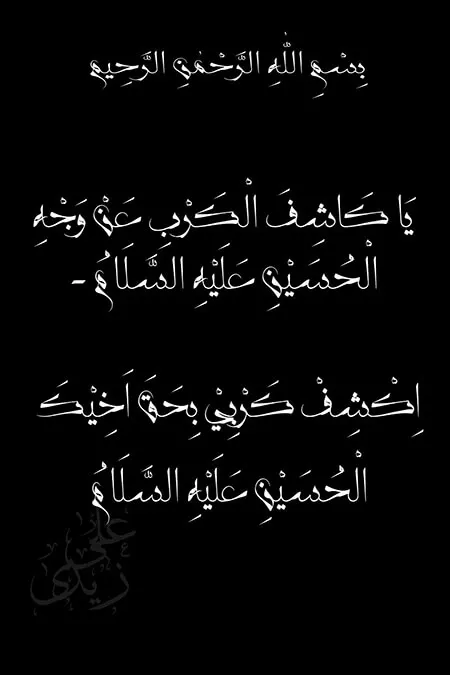 بِسْمِ اللّٰهِ الرَّحْمٰنِ الرَّحِيمِ
يَا كَاشِفَ الْكَرْبِ عَنْ وَجْهِ
الْحُسَيْنِ عَلَيْهِ السَّلَامُ -
اِكْشِفْ كَرْبِيْ بِحَقِّ اَخِيْكَ
الْحُسَيْنِ عَلَيْهِ السَّلَامُ
علی
زیدی